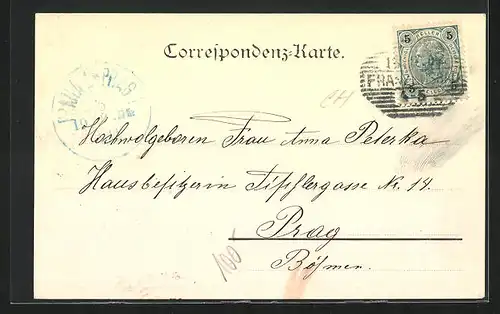 Correspondenz-Karte.
5 5
Hochwolgeboren Frau Anna Peterka
Hausbesitzerin Tischlergasse Nr. 14.
Prag
Böhmen.
100